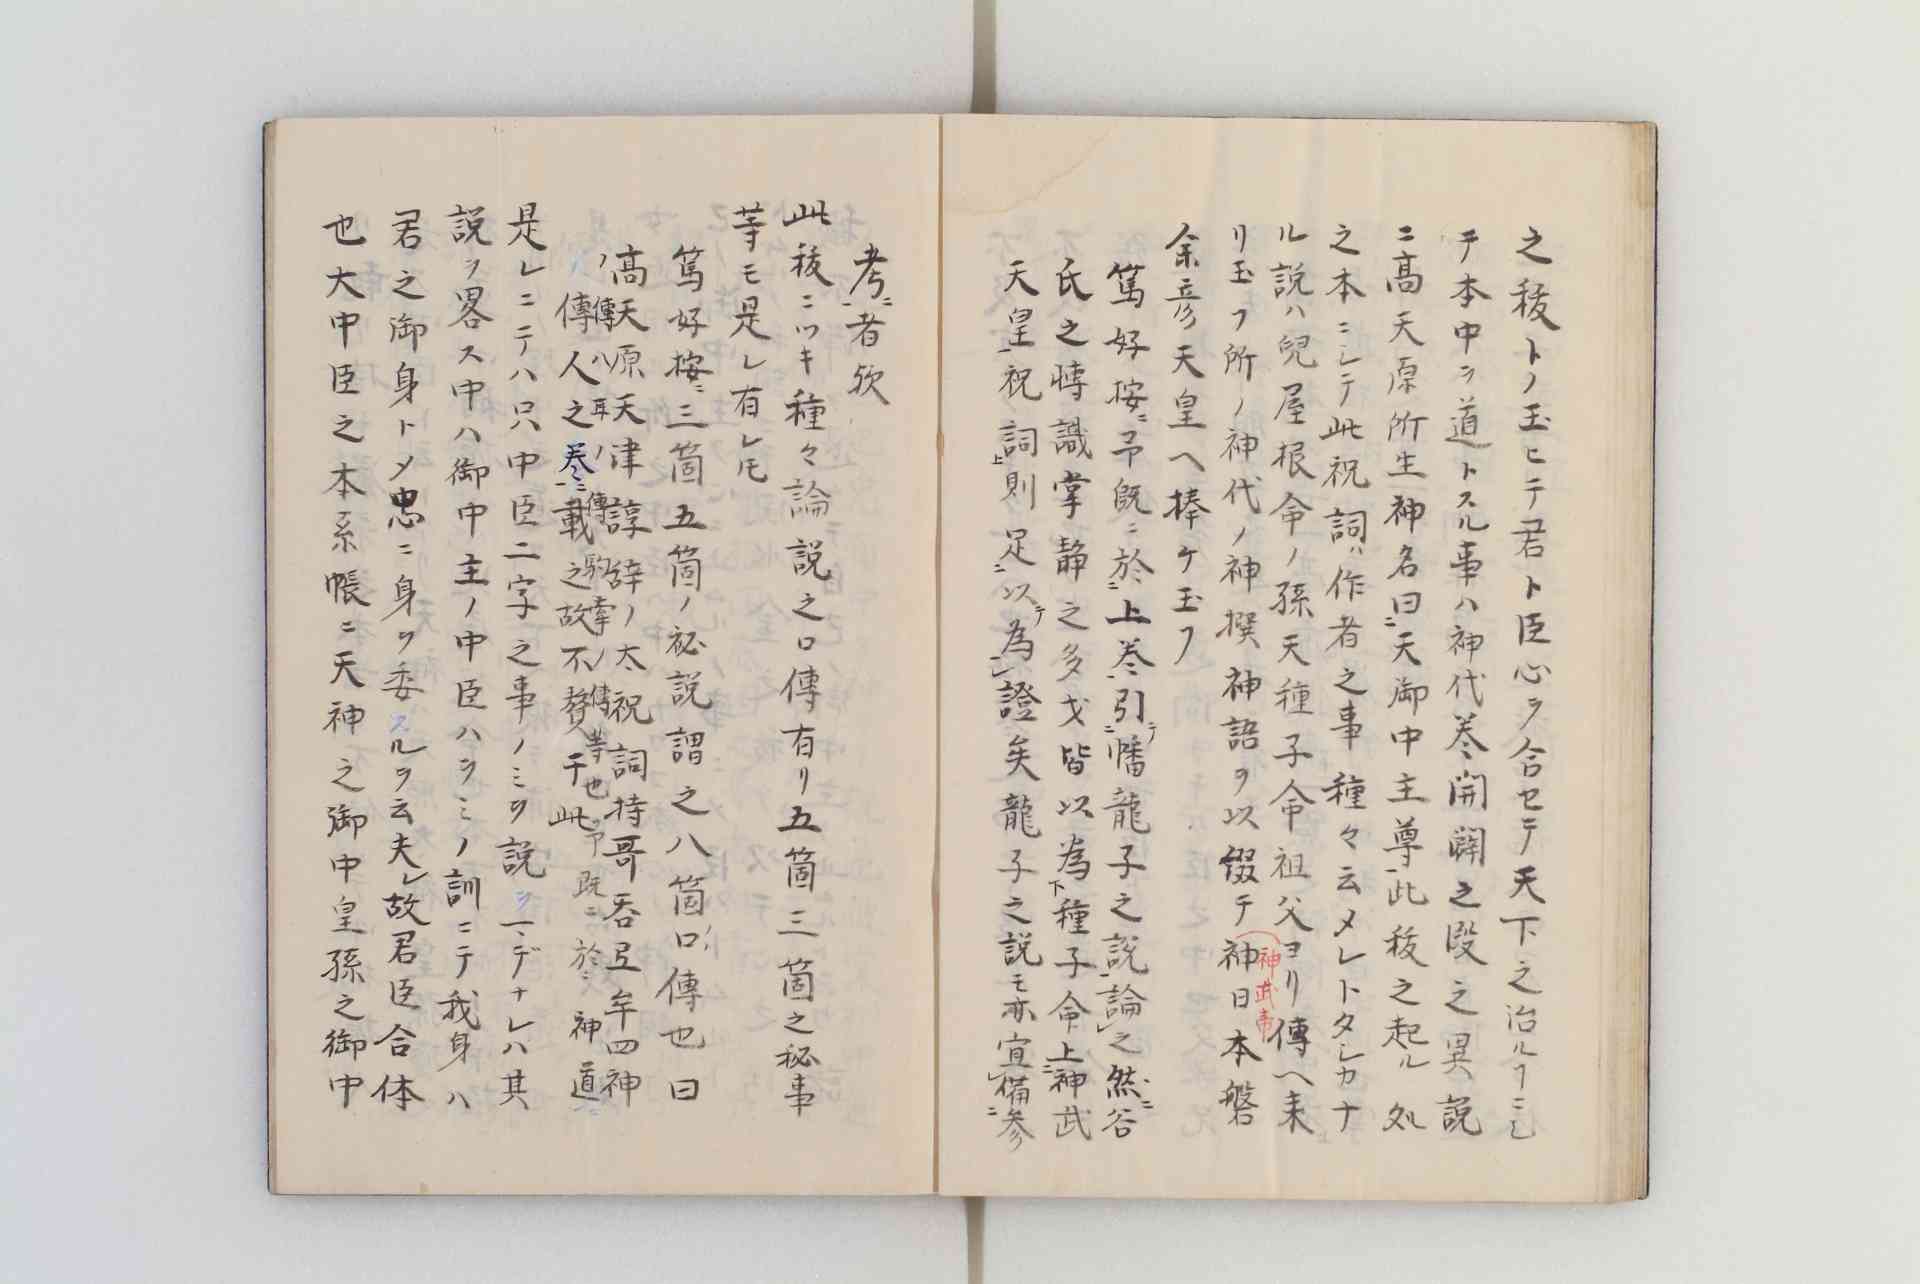 之秡トノ玉ヒテ君ト臣心ヲ合セテ天下之治ルヿニシ
テ本中ヲ道トスル事ハ神代巻開闢之段之異説
ニ高天原所生神名曰天御中主尊此秡之起ル処
之本ニシテ此祝詞ハ作者之事種々云メレトタシカナ
ル説ハ兒屋根命ノ孫天種子命祖父ヨリ傳ヘ来
リ玉フ所ノ神代ノ神撰神語ヲ以綴テ神日本磐
神武帝
余彦天皇ヘ捧ケ玉フ
篤好按ニ予既ニ於上巻引テ幡龍子之説論之然ニ谷
氏之博識掌静之多才皆以為種子命上神武
天皇祝ノ詞則足以テ為證矣龍子之説モ亦宜備参
考ニ者欤
此秡ニツキ種々論説之口傳有リ五箇三箇之秘事
等モ是レ有レ𪜈
篤好按ニ三箇五箇ノ祕説謂之八箇ノ口傳也曰
高天原天津諄辞ノ太祝詞持哥呑㠯牟四神
ノ傳八耳ノ傳駒牽ノ傳等也予既ニ於神道
傳人之巻ニ載之故不贅于此
是レニテハ只中臣二字之事ノミヲ説ヲ一デナレハ其
説ヲ畧ス中ハ御中主ノ中臣ハヲミノ訓ニテ我身ハ
君之御身トメ忠ニ身ヲ委スルヲ云夫レ故君臣合体
也大中臣之本系帳ニ天神之御中皇孫之御中